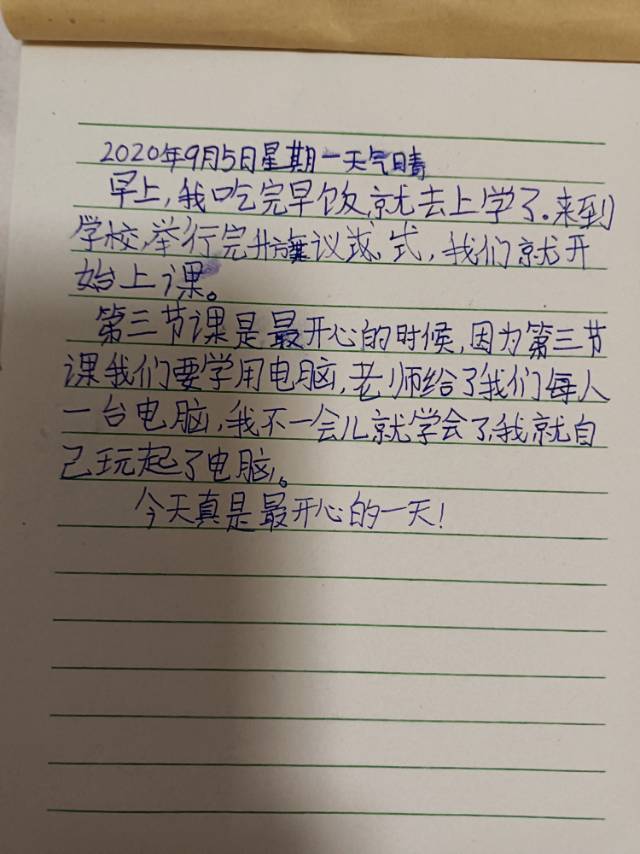 2020年9月5日星期一天气晴
早上,我吃完早饭,就去上学了.来到
学校,举行完升旗议式,我们就开
始上课。
第三节课是最开心的时候,因为第三节
课我们要学用电脑,老师给了我们每人
一台电脑,我不一会儿就学会了,我就自
己玩起了电脑。
今天真是最开心的一天!